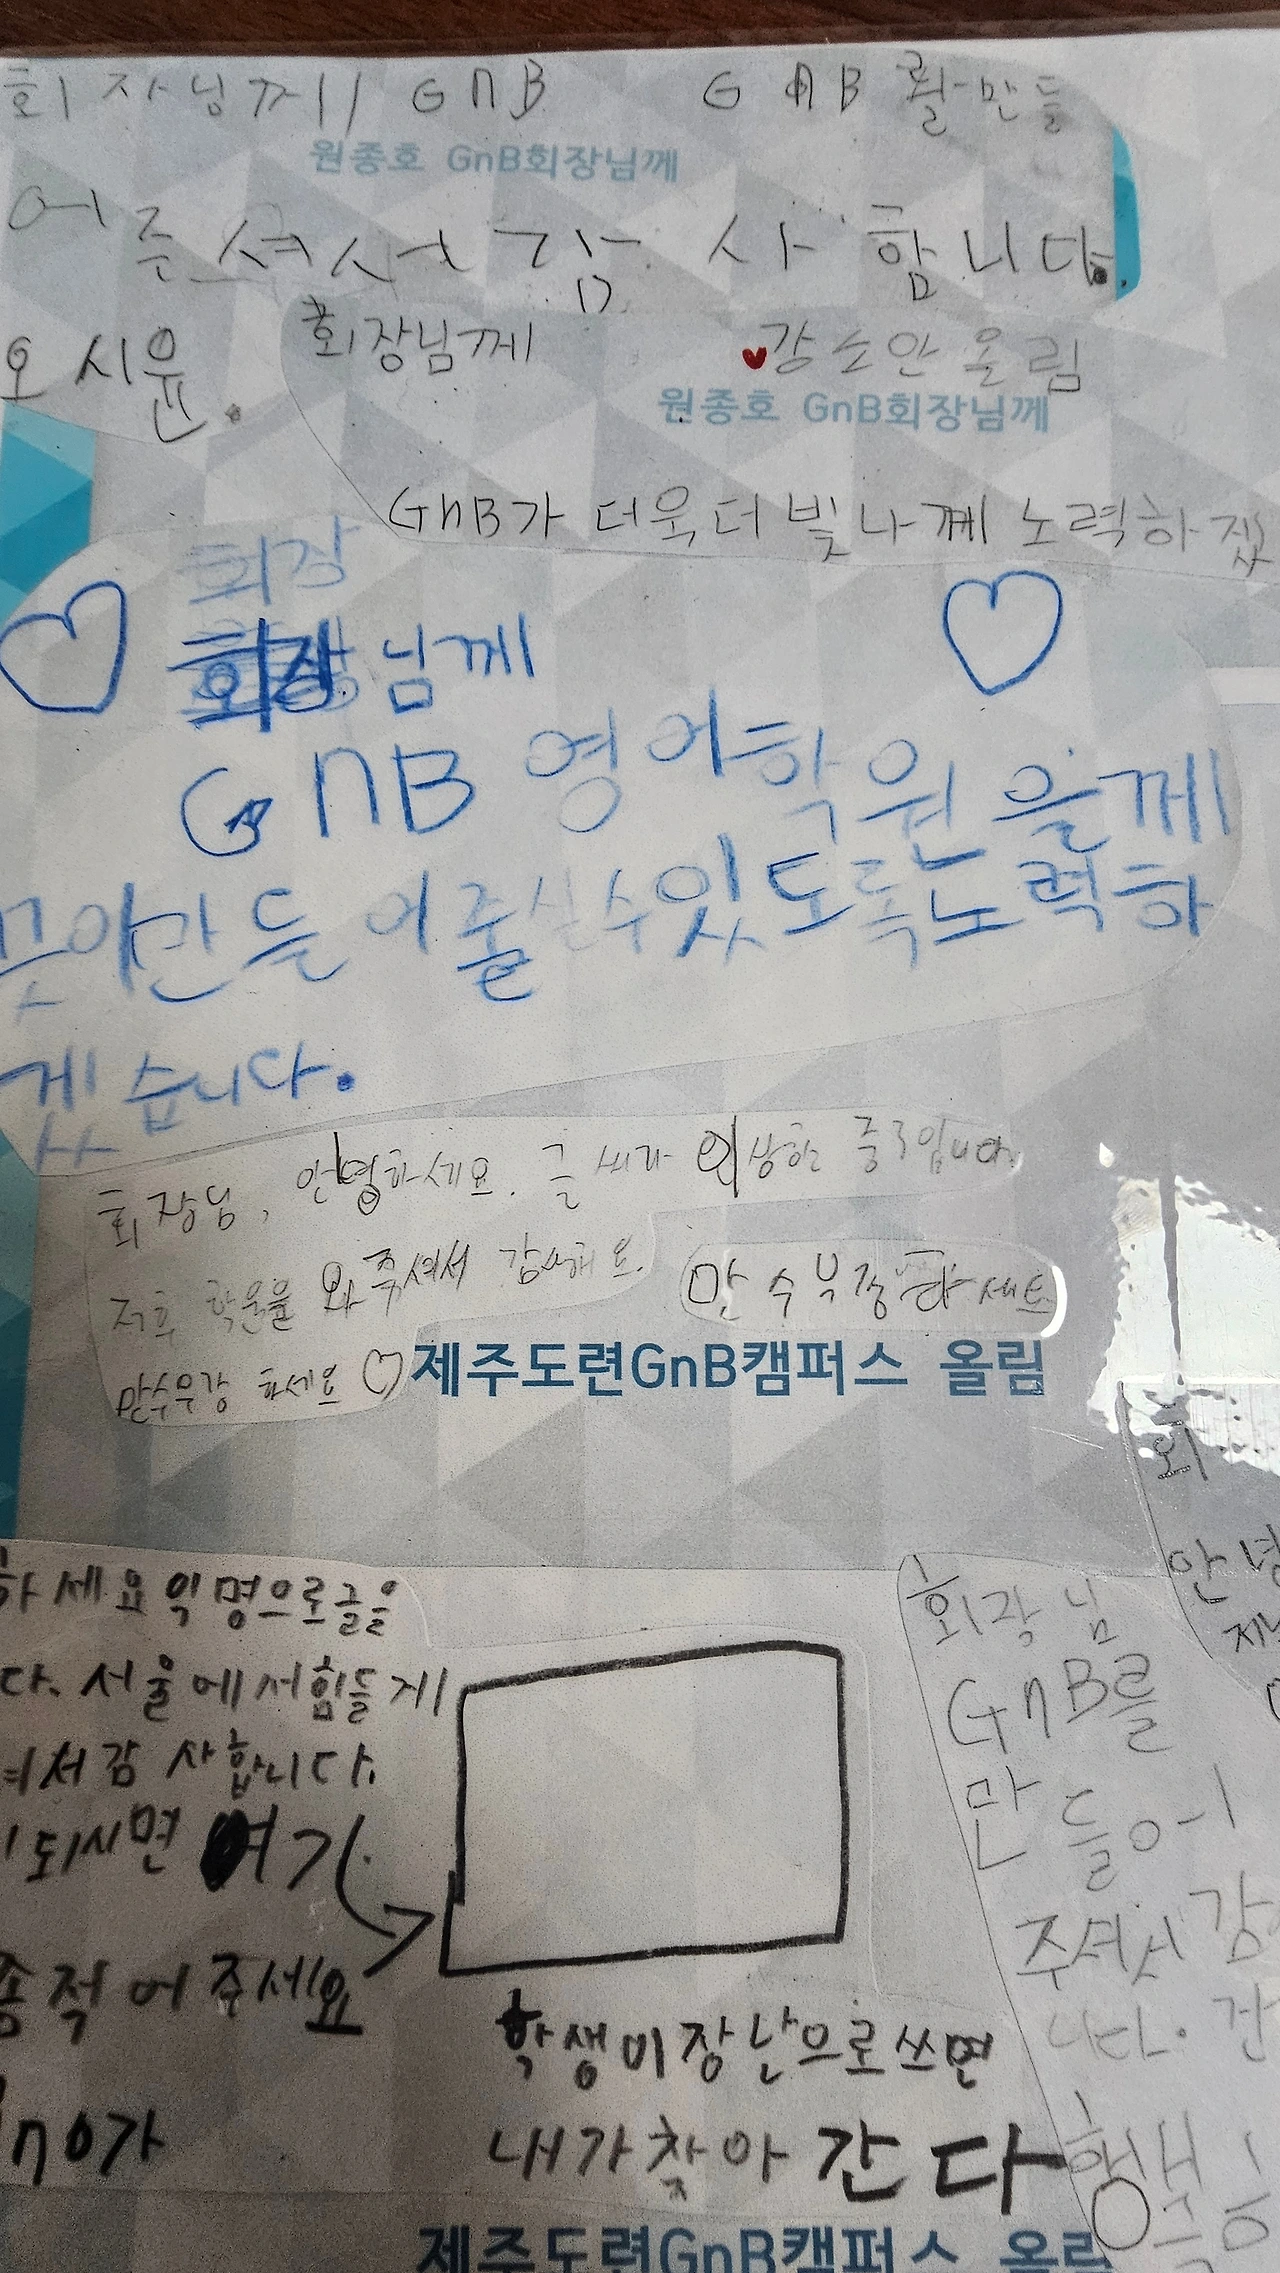 회장님께 GnB GnB를 만들
원종호 GnB회장님께
어주셔서 감사합니다.
오시윤.
회장님께 ♥강소안 올림
원종호 GnB회장님께
GnB가 더욱더 빛나게 노력하겠
회장
회장님께
GnB 영어학원을께
만들어줄실수있도록노력하
겠습니다.
회장님, 안녕하세요. 글씨가 이상한 중1입니다
저희 학원을 와주셔서 감사해요.
만수무강하세요
만수무강 하세요 ♡
제주도련GnB캠퍼스 올림
회
안녕
하세요 익명으로글을
다. 서울에서힘들게
셔서감사합니다.
되시면 여기
적어주세요
가
학생이장난으로쓰면
내가찾아간다
회장님
GnB를
만들어
주셔서 감
니다. 건
행복
제주도련GnB캠퍼스 올림